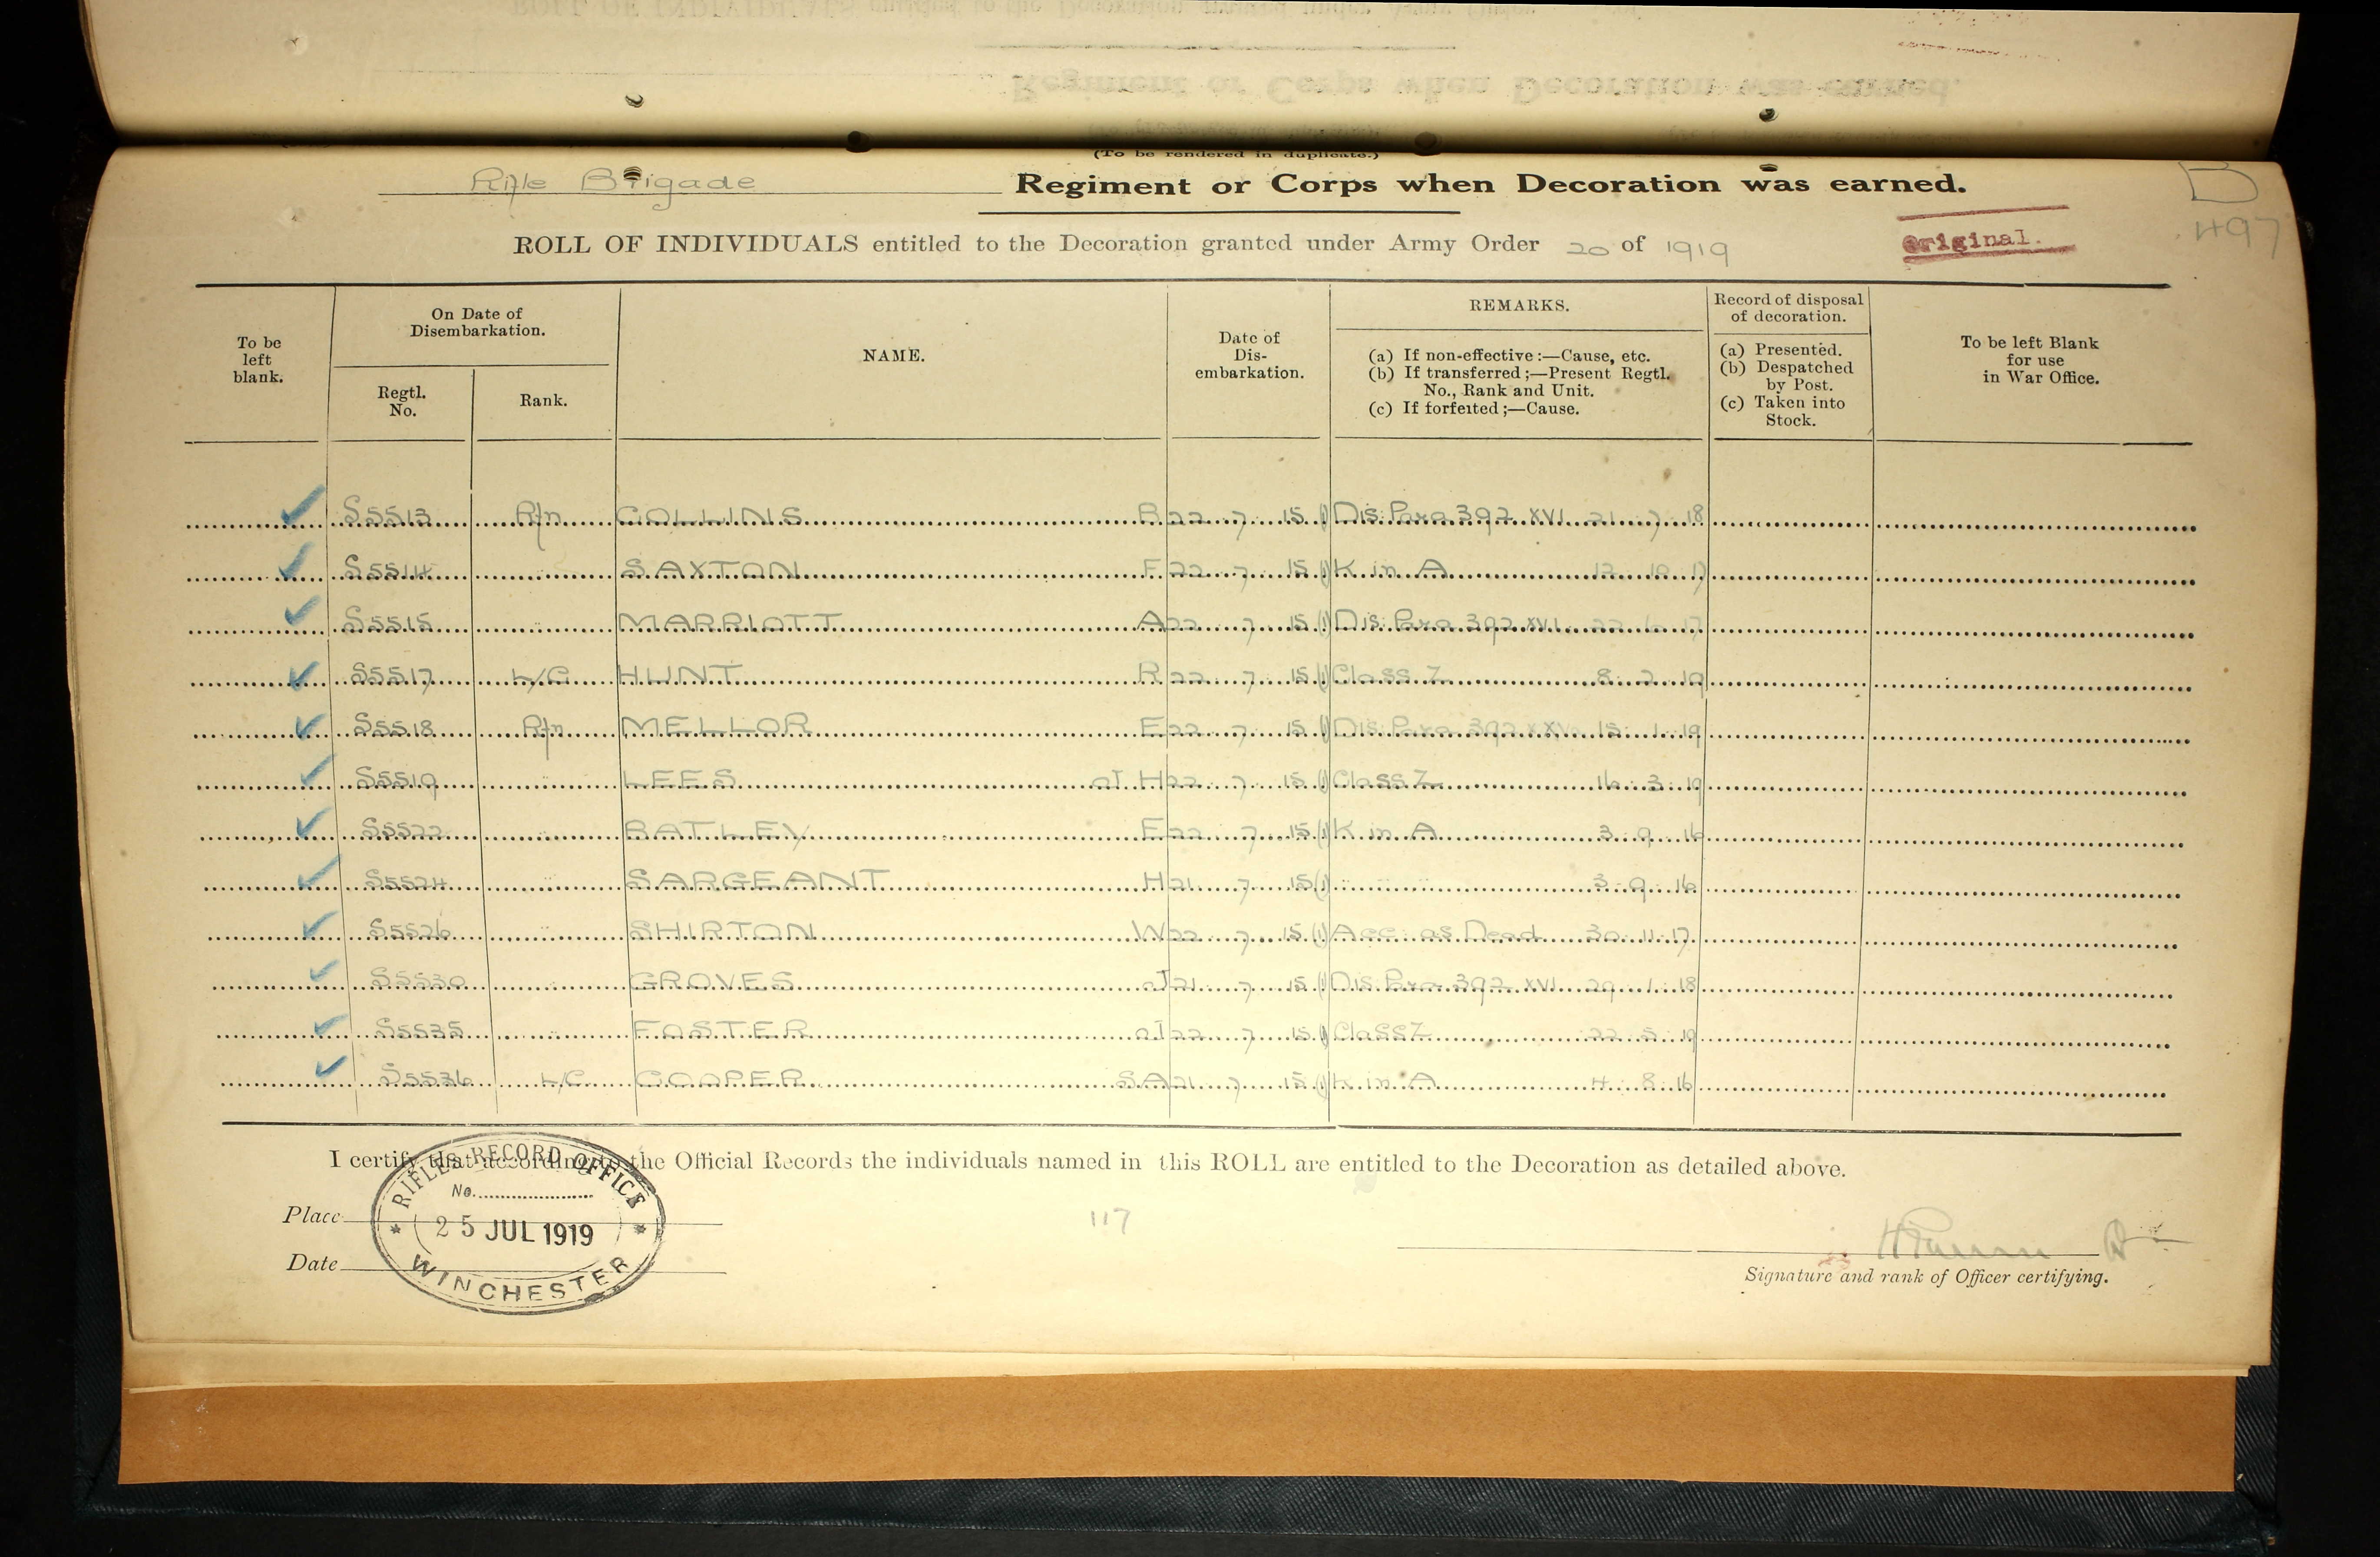 (To be rendered in duplicate.)
Rifle Brigade Regiment or Corps when Decoration was earned.
B
497
ROLL OF INDIVIDUALS entitled to the Decoration granted under Army Order 20 of 1919
Original.
To be left blank.
On Date of Disembarkation.
Regtl. No.
Rank.
NAME.
Date of Dis-embarkation.
REMARKS.
(a) If non-effective:—Cause, etc.
(b) If transferred;—Present Regtl. No., Rank and Unit.
(c) If forfeited;—Cause.
Record of disposal of decoration.
(a) Presented.
(b) Despatched by Post.
(c) Taken into Stock.
To be left Blank for use in War Office.
S5513 Rfn COLLINS R 22 7 15 (1) Dis. Para 392 XVI 21 7 18
S5514 " SAXTON F 22 7 15 (1) K in A 12 10 17
S5515 " MARRIOTT A 22 7 15 (1) Dis. Para 392 XVI 22 6 17
S5517 L/C HUNT R 22 7 15 (1) Class Z 8 2 19
S5518 Rfn MELLOR E 22 7 15 (1) Dis. Para 392 15 1 19
S5519 " LEES J H 22 7 15 (1) Class Z 16 3 19
S5522 " BATLEY E 22 7 15 (1) K in A 3 9 16
S5524 " SARGEANT H 21 7 15 (1) " " " 3 9 16
S5526 " SHIRTON W 22 7 15 (1) Acc. as Dead 30 11 17
S5530 " GROVES J 21 7 15 (1) Dis. Para 392 XVI 29 1 18
S5535 " FOSTER J 22 7 15 (1) Class Z 22 5 19
S5536 L/C COOPER S A 21 7 15 (1) K in A 4 8 16
I certify that according to the Official Records the individuals named in this ROLL are entitled to the Decoration as detailed above.
RIFLES RECORD OFFICE
No.
25 JUL 1919
WINCHESTER
Place
117
Date
Signature and rank of Officer certifying.